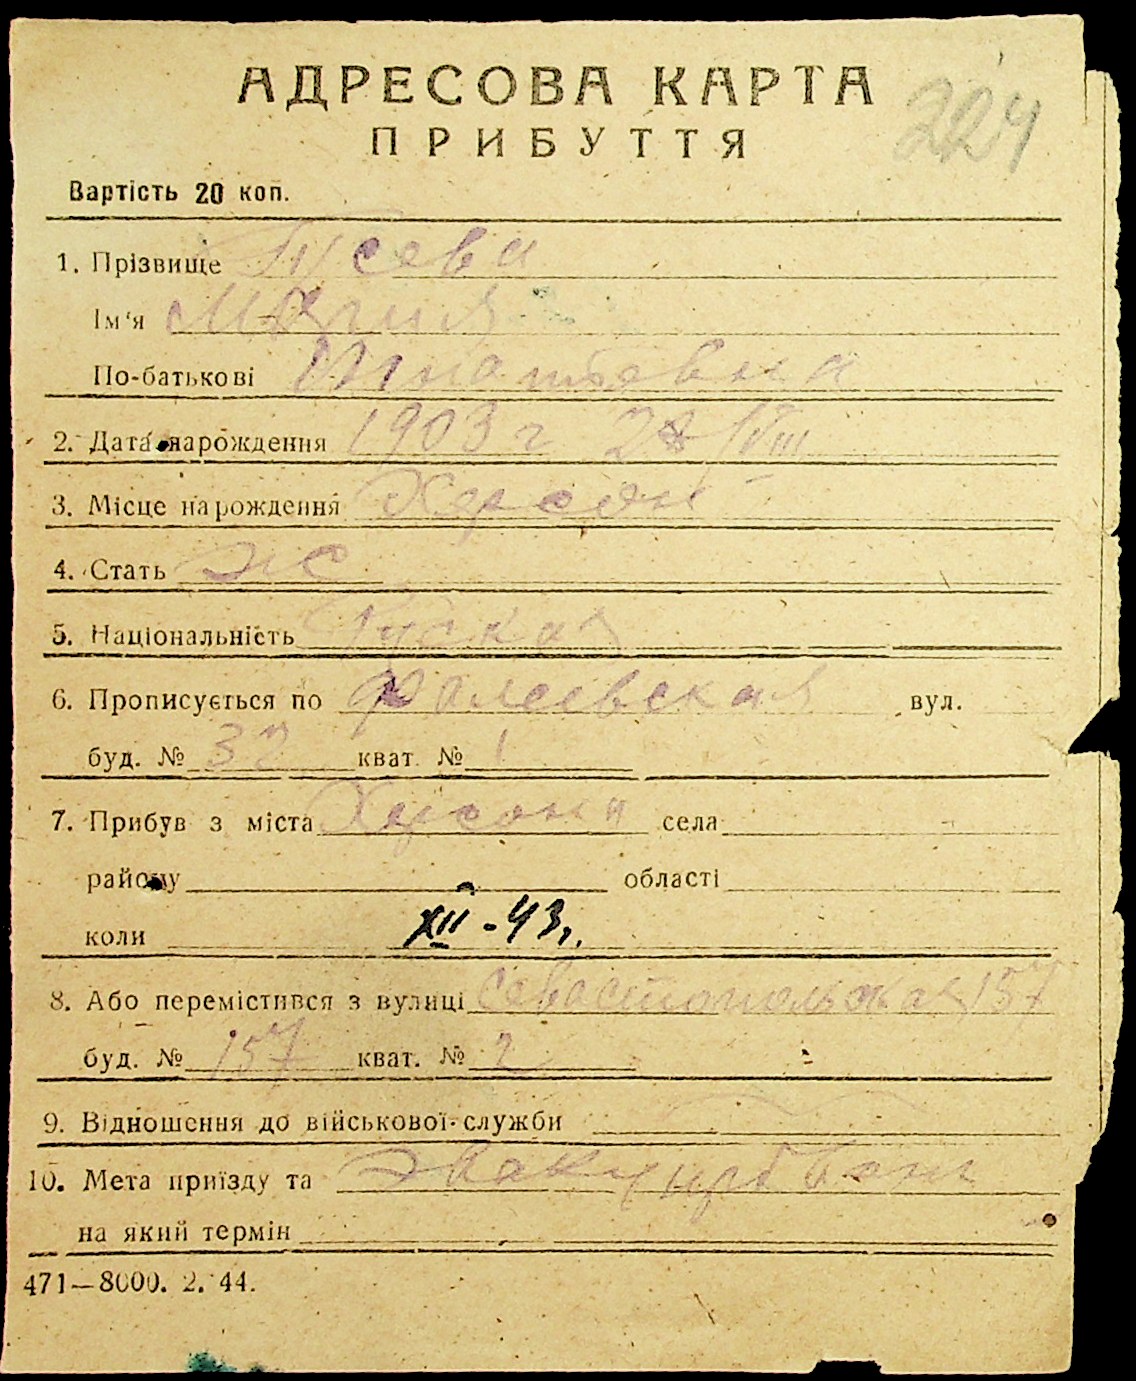 АДРЕСОВА КАРТА
224
ПРИБУТТЯ
Вартість 20 коп.
1. Прізвище Гусева
Ім'я Мария
По-батькові Игнатьевна
2. Дата народження 1903 г 28/VIII
3. Місце народження Херсон
4. Стать ж
5. Національність Руская
6. Прописується по Фалеевская вул.
буд. № 32 кват. № 1
7. Прибув з міста Херсона села
району області
коли XII-43г.
8. Або перемістився з вулиці Севастопольская 157
буд. № 157 кват. № 2
9. Відношення до військової служби
10. Мета приїзду та
на який термін
471—8000. 2. 44.